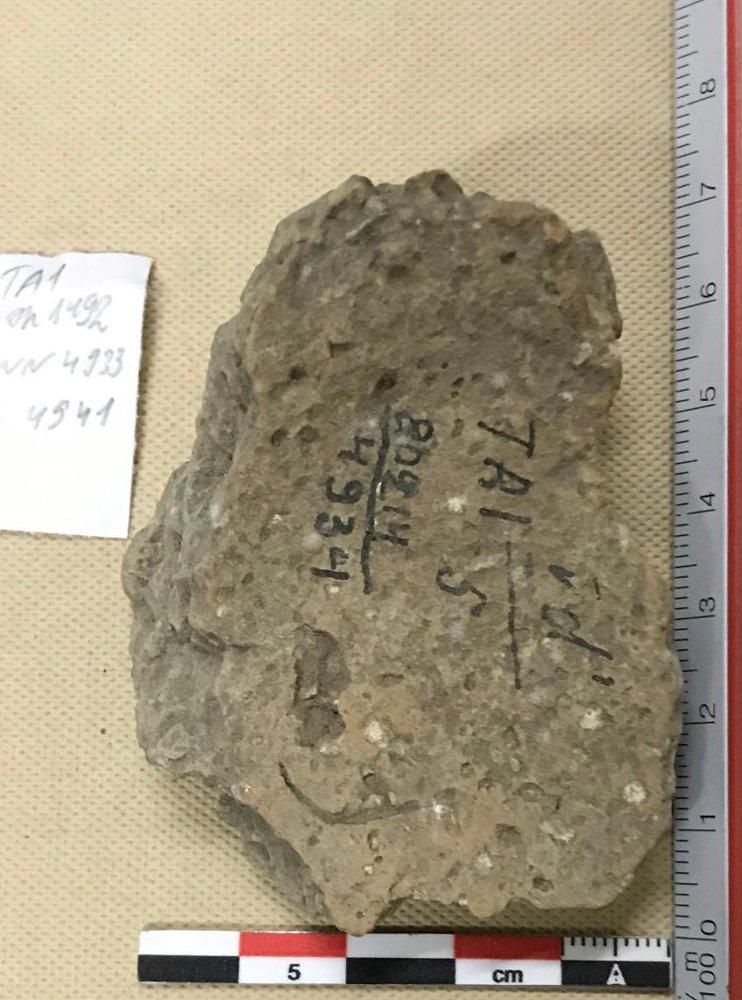 TA1
1492
4933
4941
TA1
5
80914
4934
8
7
6
5
4
3
2
1
0
m
1/100
5
cm
A